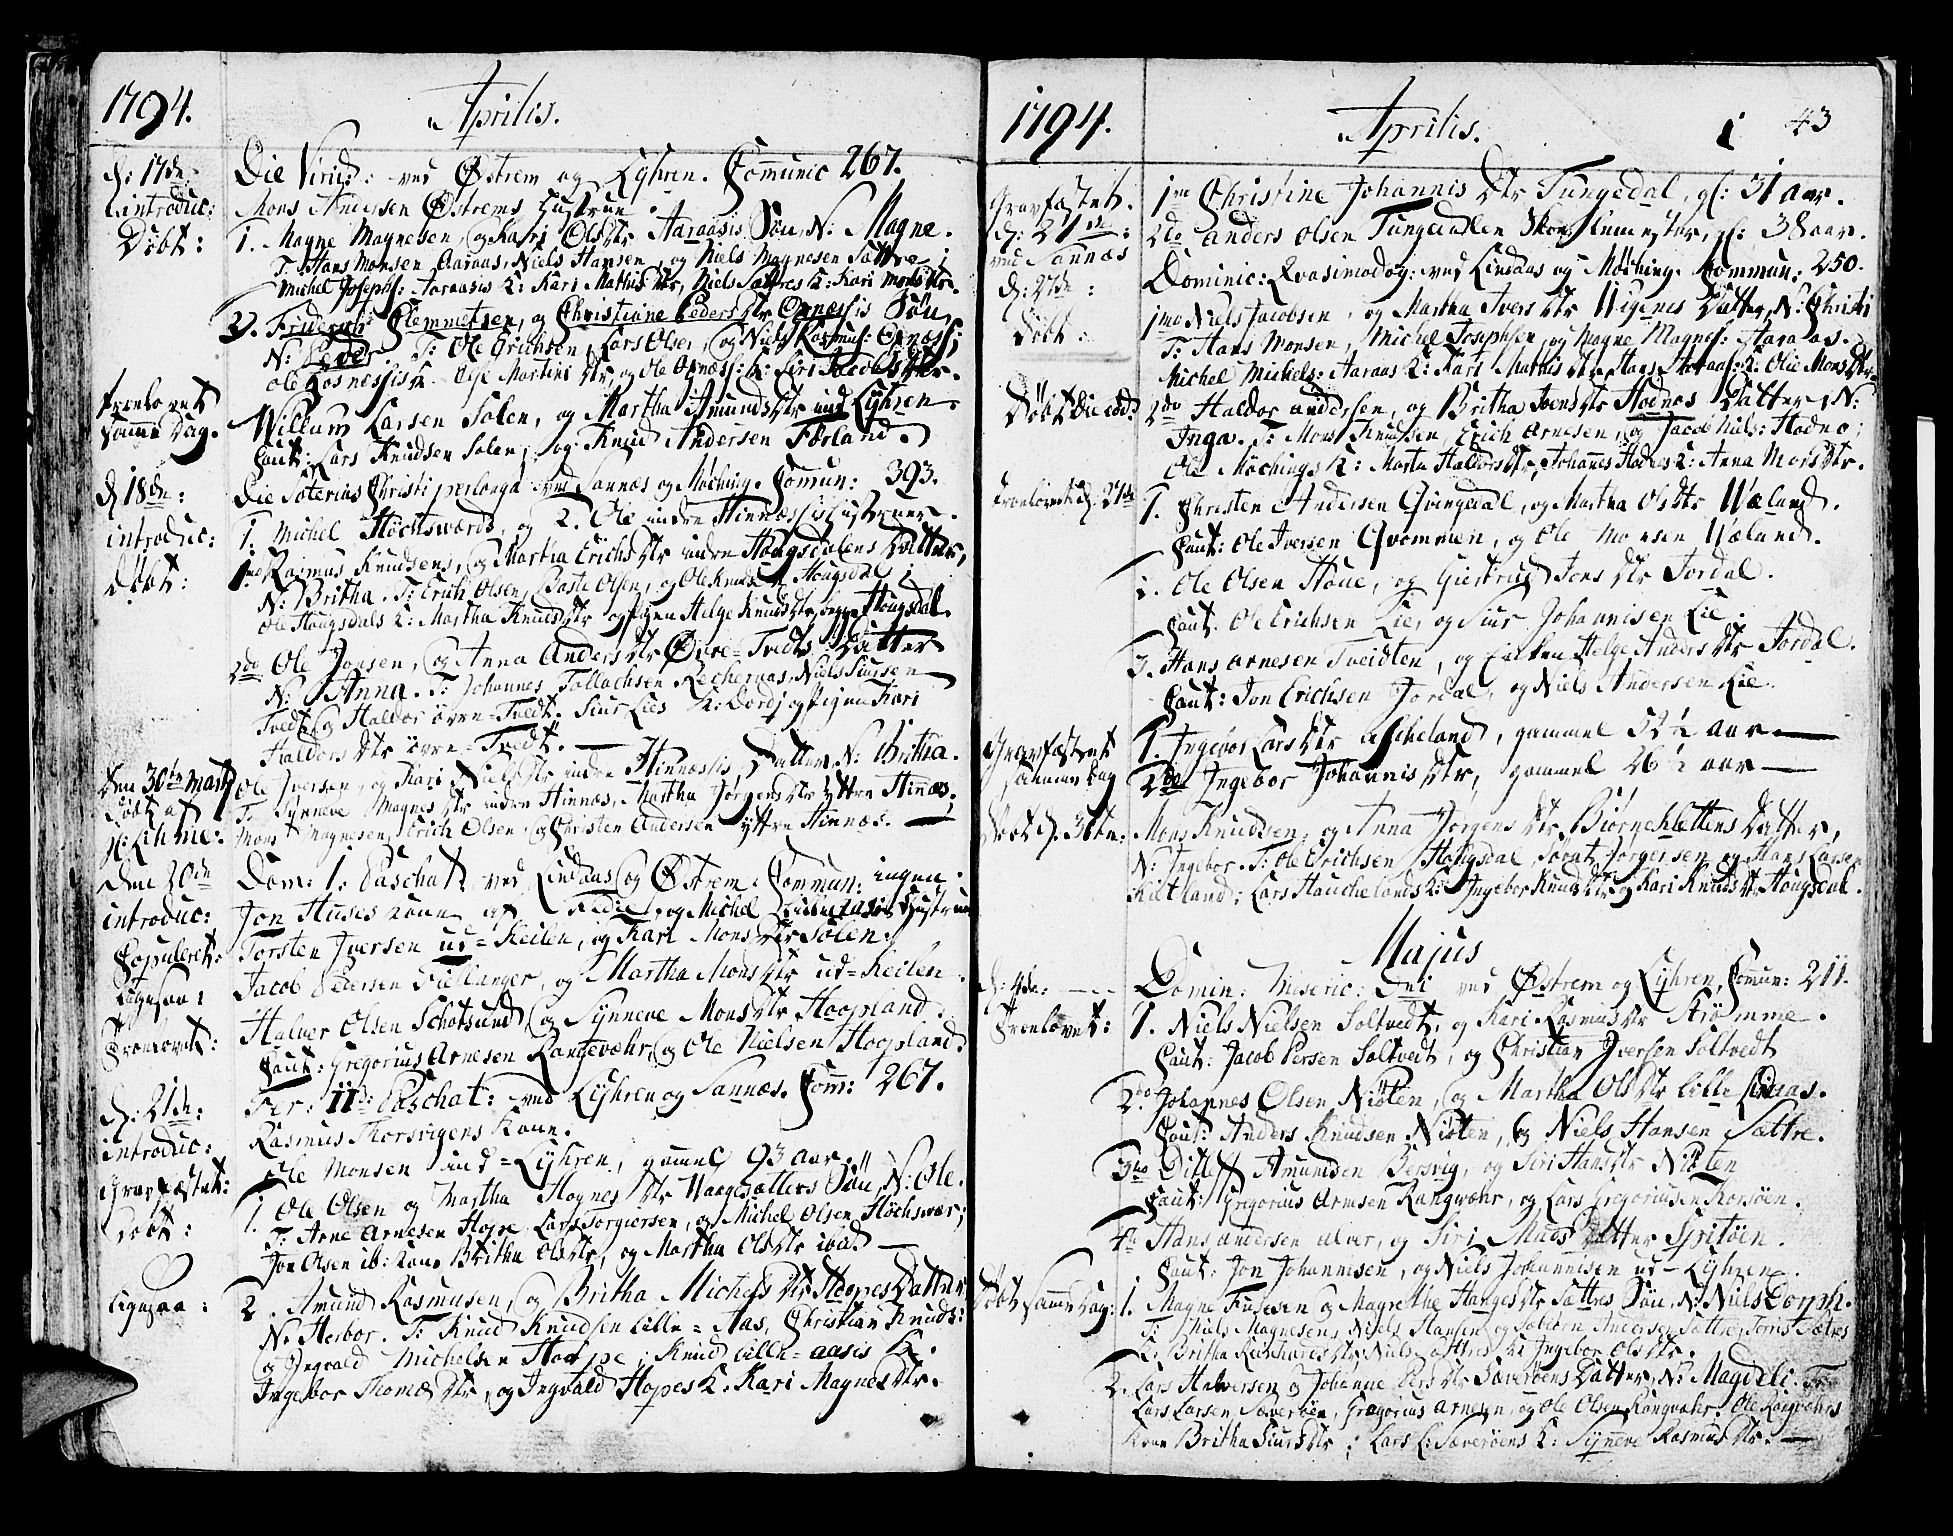 1794. Aprilis.
d: 17de Die Virid: ved Østrem og Lyhren. Communic 267.
introduc: Mons Andersen Østrems Hustrue.
Døbt: 1. Magne Magnesen, og Kari Ols dtr Aaraasis Søn, N: Magne.
T: Hans Monsen Aaraas, Niels Hansen, og Niels Magnesen Sættre;
Michel Josephs: Aaraasis K: Kari Mathis dtr, Niels Sættres K: Kari Mons dtr.
2. Friderich Clemmetsen, og Christiane Peders dtr Odnæsis Søn,
N: Peder. T: Ole Erichsen, Lars Olsen, og Niels Rasmus: Odnæss;
Ole Martini dtr, og Ole Odnæss: K: Siri Jacobs dtr.
Trolovet samme Dag. Willum Larsen Solen, og Martha Amunds dtr ind Lyhren.
Caut: Lars Knudsen Solen, og Knud Andersen Færland.
d 18de: Die Soterius Christi perlonga ved Sannæs og Møching. Comun: 393.
introduc: 1. Michel Høchsværds, og 2. Ole indre Hinnæssis Hustruer.
Døbt: 1mo Rasmus Knudsens, og Martha Erichs dtr indre Hougsdalens Datter,
N: Britha. T: Erich Olsen, Baste Olsen, og Ole Knuds: Hougsdal;
Ole Hougsdals K: Martha Knuds dtr og Pigen Helge Knuds dtr Hougsdal.
2do Ole Jonsen, og Anna Anders dtr Øvre=Tvedts Datter
N: Anna. T: Johannes Tollachsen Kechernæs, Niels Siursen
Tvedt og Haldor øvre=Tvedt. Siur Lies K: Dordj og Pigen Kari
Haldors dtr øvre=Tvedt.
Den 30te Martj Døbt af H: Lihme: Ole Iversen, og Kari Niels dtr indre Hinnæssis Datter N: Britha.
T: Synneve Magnes dtr indre Hinnæs, Martha Jørgens dtr yttre Hinæs.
Mons Magnesen, Erich Olsen og Christen Andersen yttre Hinnæs.
Den 20de Dom: 1. Paschat: ved Lindaas og Østrem. Commun: ingen.
introduc: Jon Huses Kone af Fedie, og Michel Hustrue
Copuleret: Torsten Iversen ud=Keilen, og Kari Mons dtr Solen.
Ligesaa: Jacob Pedersen Fiellanger, og Martha Mons dtr ud=Keilen.
Trolovet: Halver Olsen Schotsund, og Synneve Mons dtr Hoopland.
Caut: Gregorius Arnesen Rangevæhr, og Ole Nielsen Hoopland.
d: 21de: Fer: IId: Paschat: ved Lyhren og Sannæs. Com: 267.
introduc: Rasmus Thorsvigens Kone.
Gravfæstet: Ole Monsen ind=Lyhren, gamel 93 aar.
Døbt: 1. Ole Olsen og Martha Hognes dtr Waagesætters Søn, N: Ole.
T: Arne Arnesen Hope, Lars Torgiersen, og Michel Olsen Høchsvær;
Jon Olsen ib: Kone Britha Ols dtr, og Martha Ols dtr ibid.
Ligesaa: 2. Amund Rasmusen, og Britha Michels dtr Hoopes Datter
N: Herbor. T: Knud Knudsen Lille=Aas, Christian Knuds:
og Ingvald Michelsen Hoope; Knud Lille=aasis K:
Ingebor Thomæ dtr, og Ingvald Hopes K. Kari Magnes dtr.
1794. Aprilis. 43
Gravfæstet. 1mo Christine Johannis dtr Tungedal, gl: 31 aar.
d: 21de: ved Sannæs 2do Anders Olsen Tungedalen Skoelemester, gl: 38 aar.
d: 27de: Dominic: Qvasimodog: ved Lindaas og Møching. Commun: 250.
Døbt: 1mo Niels Jacobsen, og Martha Ivers dtr Wigenes Datter, N: Christi
T: Hans Monsen, Michel Josephsen, og Magne Magnes: Aaraas.
Michel Michels: Aaraas K: Kari Mathis dtr, Hans Aaraas: K: Olie Mons dtr.
Døbt Die eod: 2do Haldor Andersen, og Britha Ivers dtr Hodnes Datter, N:
Inga. T: Mons Knudsen, Erich Arnesen, og Jacob Niels: Hodne;
Ole Møchings K: Marta Haldors dtr, Johannes Hodnes K: Anna Mons dtr.
Troelovet d: 27de 1. Christen Andersen Qvingedal, og Martha Ols dtr Wæland.
Caut: Ole Iversen Qvommen, og Ole Monsen Wæland.
2. Ole Olsen Houe, og Giertrud Jons dtr Jordal.
Caut. Ole Erichsen Lie, og Siur Johannisen Lie.
3. Hans Arnesen Tveidten, og Enken Helge Anders dtr Jordal.
Caut: Jon Erichsen Jordal, og Niels Andersen Lie.
Gravfæstet samme Dag 1. Ingebor Lars dtr Escheland, gammel 52½ aar
2do Ingebor Johannis dtr, gammel 26½ aar
Døbt d. 30te: Mons Knudsen, og Anna Jørgens dtr Biørneklettens Datter,
N: Ingebor. T: Ole Erichsen Hougsdal, Jørgensen og Hans Larsen
Kietland; Lars Hauchelands K: Ingebor Knuds dtr og Kari Knuds dtr Hougsdal.
Majus
d: 4de: Domin: Miseric: Dni ved Østrem og Lyhren, Comun: 211.
Troelovet: 1. Niels Nielsen Soltvedt, og Kari Rasmus dtr Strømme.
Caut: Jacob Persen Soltvedt, og Christian Iversen Soltvedt
2do Johannes Olsen Niøten, og Martha Ols dtr Lille Lindaas.
Caut: Anders Knudsen Niøten, og Niels Hansen Sættre.
3tio Ditleff Amundsen Bersvig, og Siri Hans dtr Niøten
Caut: Gregorius Arnesen Rangvæhr, og Lars Gregoriusen Korsøen.
4to Hans Andersen Alver, og Siri Mads datter Gritøen.
Caut: Jon Johannisen, og Niels Johannisen ud=Lyhren.
Døbt same Dag: 1. Magne Fusesen og Magrethe Hanges dtr Sættres Søn, N: Niels Dorph.
T: Niels Magnesen, Niels Hansen, og Andersen Sættre, Joris Sætres
K: Britha Reinhards dtr, Niels Sættres K: Ingebor Ols dtr.
2. Lars Halversen og Johanne Pers dtr Sæverøens Datter, N: Magdeli. T:
Lars Larsen Sæverøen, Gregorius Arnesen, og Ole Olsen Rangvæhr; Ole Rangvæhrs
Kone Britha Siurs dtr; Lars L: Sæverøens K: Synneve Rasmus dtr.